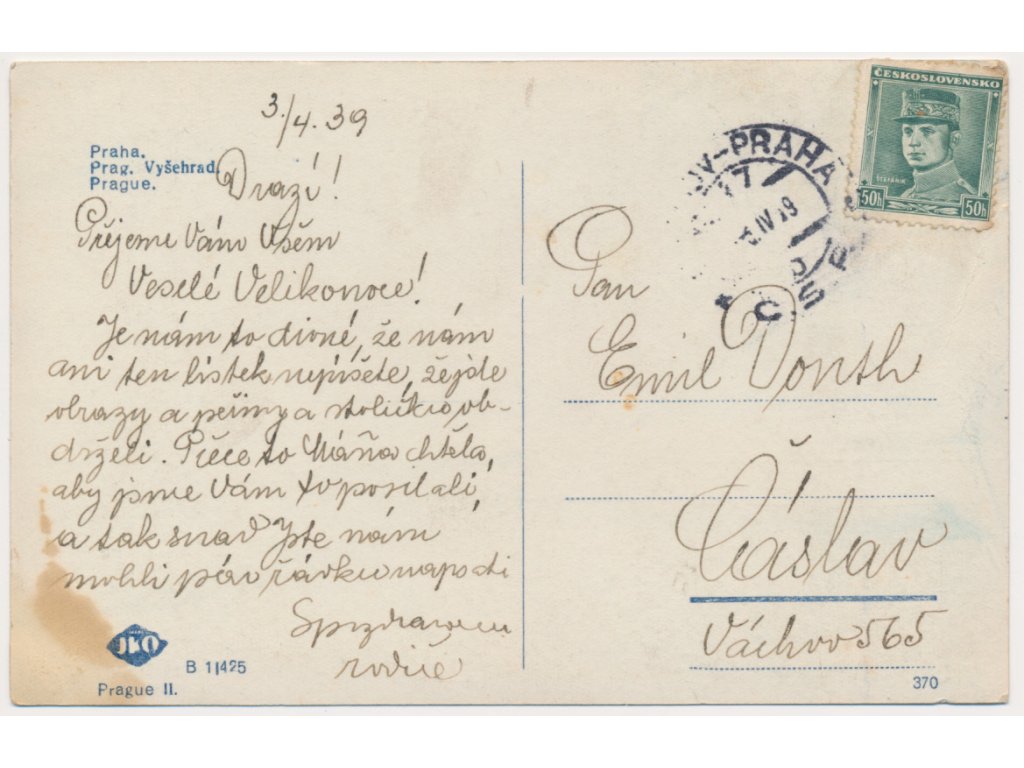 3./4.39
Praha.
Prag. Vyšehrad.
Prague.
Drazí!
Přejeme Vám Všem
Veselé Velikonoce!
Je nám to divné, že nám
ani ten lístek nepíšete, že jste
obrazy a peřiny a stoličku ob-
drželi. Přece to Máňa chtěla,
aby jsme Vám to posílali,
a tak snad Jste nám
mohli pár řádků napsati
S pozdravem
rodiče
JKO
B 11425
Prague II.
ČESKOSLOVENSKO
ŠTEFÁNIK
50h 50h
OV-PRAHA
17
IV 39
Č.S.P.
Pan
Emil Vonth
Čáslav
Váchov 565
370